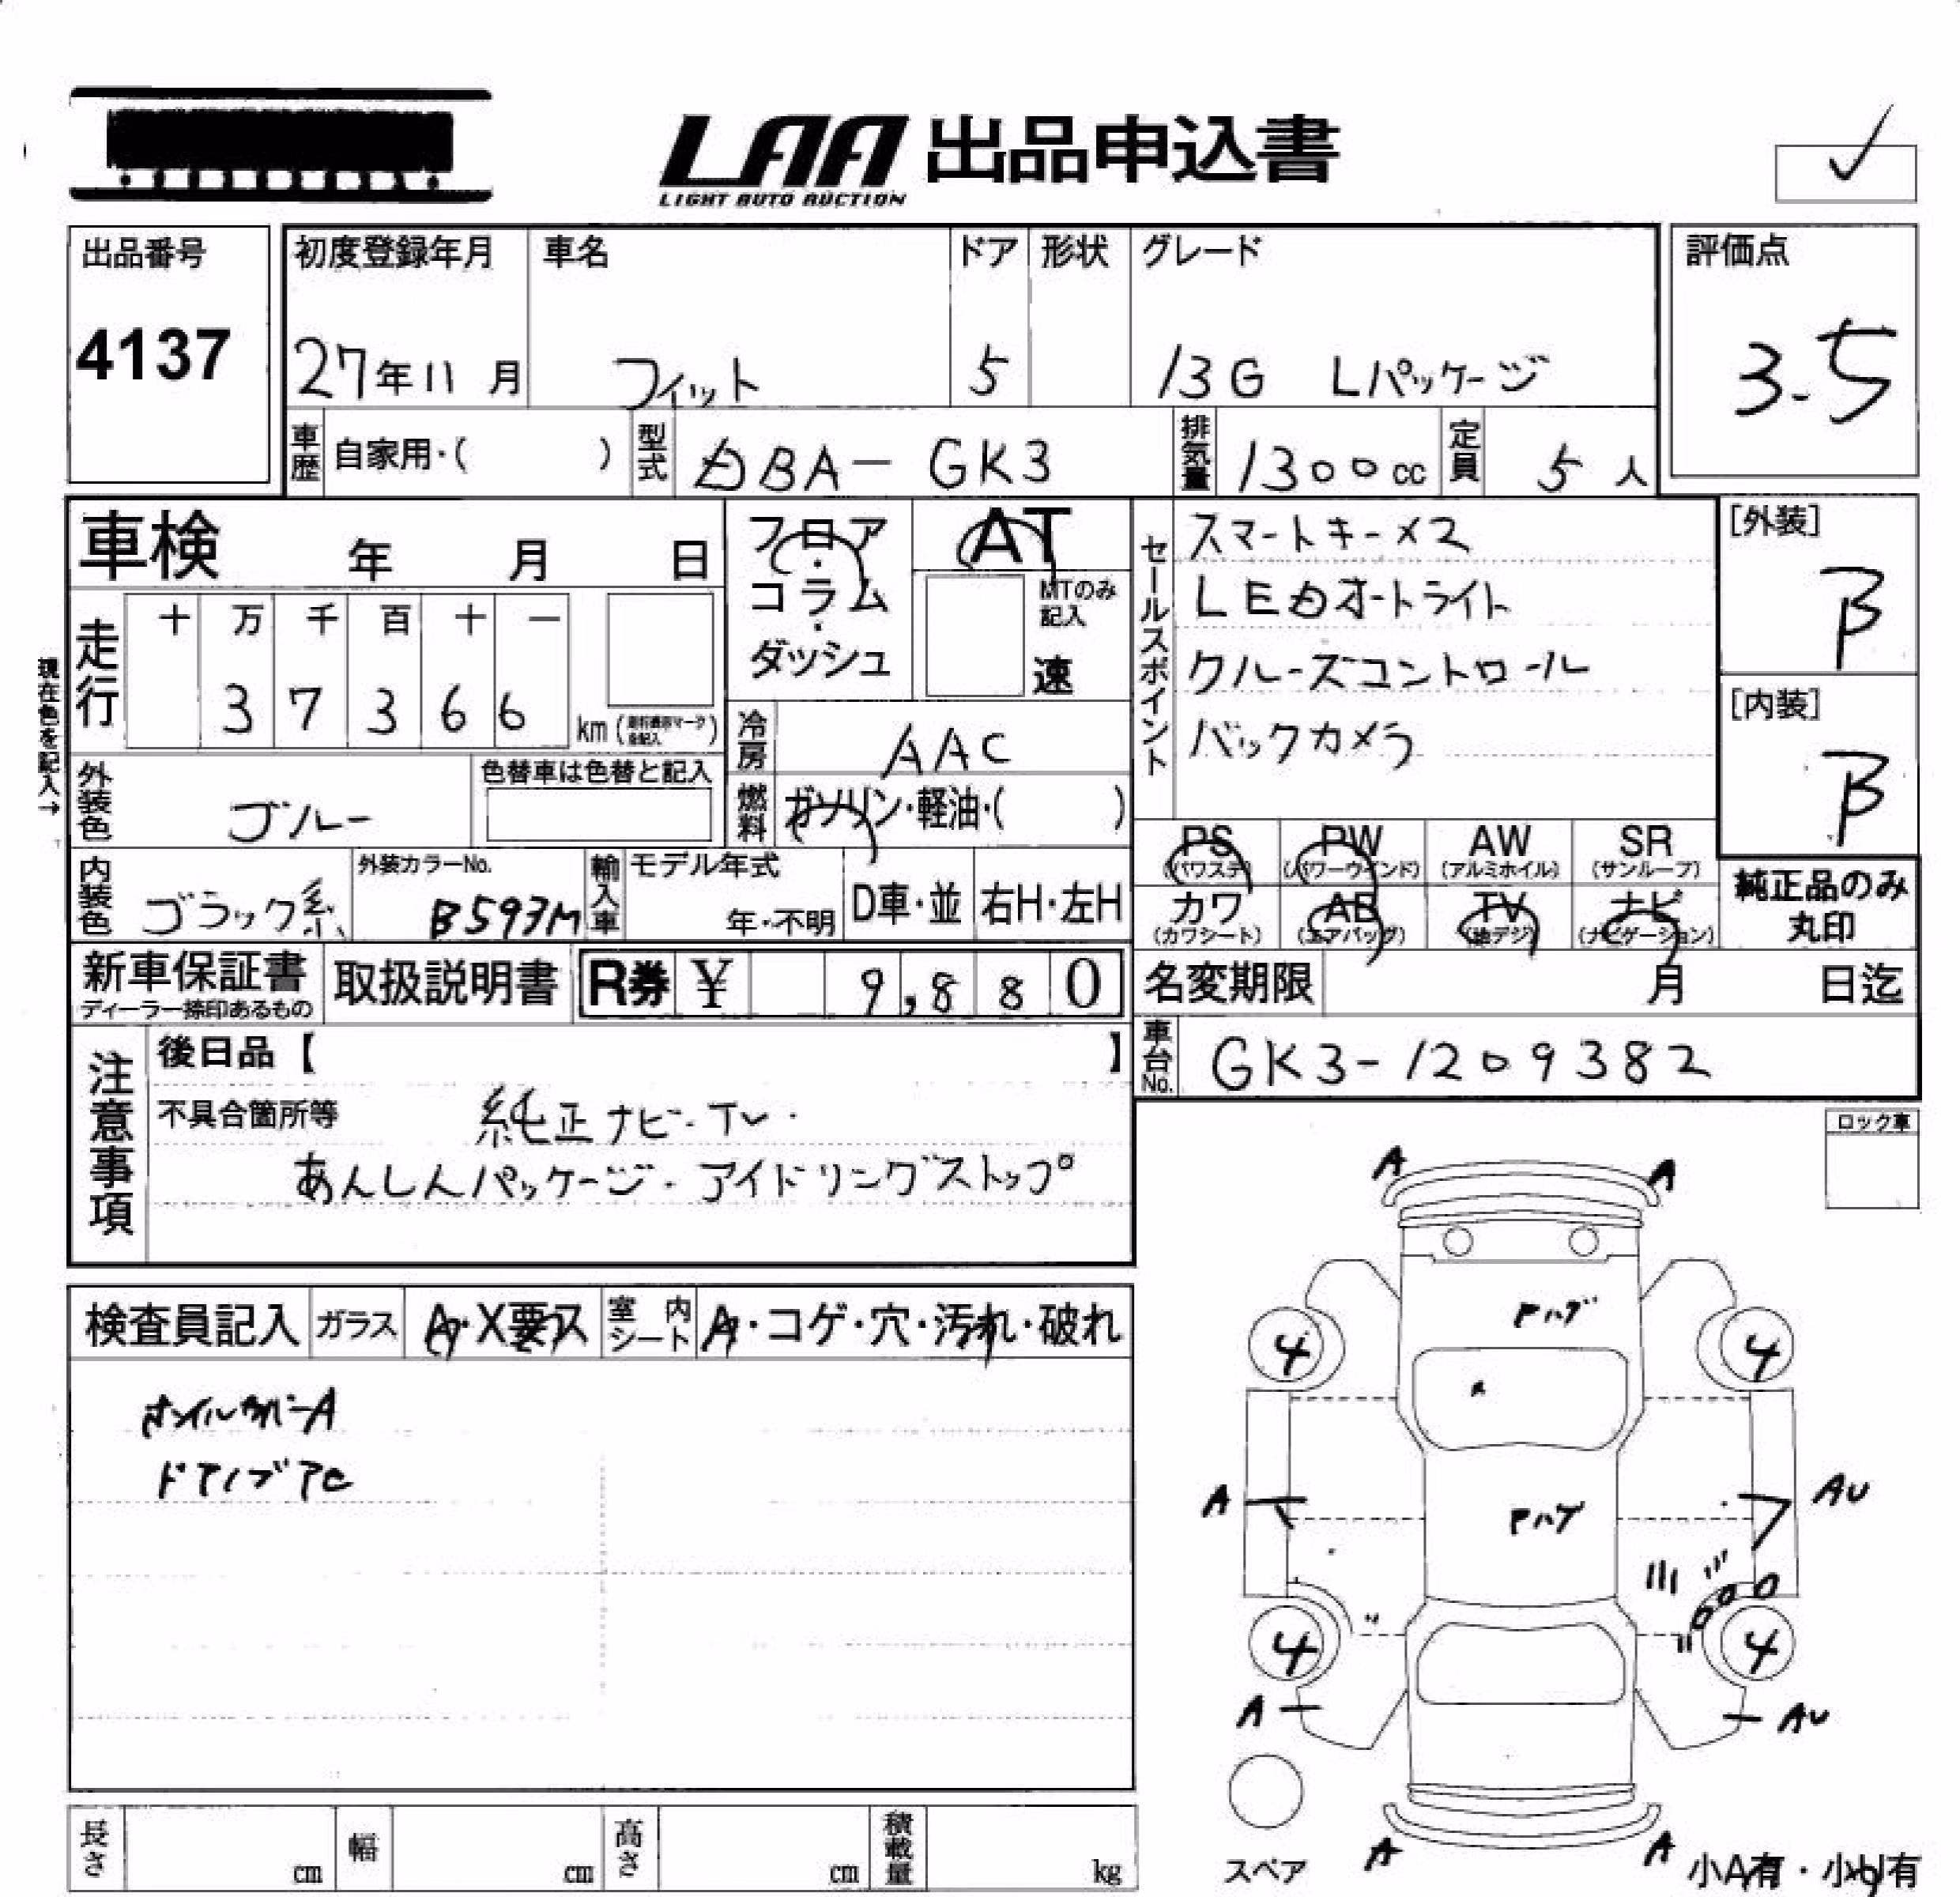 LAA 出品申込書
LIGHT AUTO AUCTION
出品番号
4137
初度登録年月
27年11月
車名
フィット
ドア
5
形状
グレード
13G Lパッケージ
評価点
3.5
車歴 自家用・( )
型式 DBA-GK3
排気量 1300cc
定員 5人
車検 年 月 日
走行 十 万 千 百 十 一
3 7 3 6 6 km
現在色を記入→
フロア・コラム・ダッシュ
AT
MTのみ記入
速
冷房 AAC
燃料 ガソリン・軽油・( )
セールスポイント
スマートキー×2
LEDオートライト
クルーズコントロール
バックカメラ
[外装]
B
[内装]
B
外装色 ブルー
色替車は色替と記入
内装色 ブラック系
外装カラーNo.
B593M
輸入車 モデル年式
年・不明
D車・並
右H・左H
PS (パワステ)
PW (パワーウインド)
AW (アルミホイル)
SR (サンルーフ)
カワ (カワシート)
AB (エアバッグ)
TV (地デジ)
ナビ (ナビゲーション)
純正品のみ丸印
新車保証書
ディーラー捺印あるもの
取扱説明書
R券 ¥ 9,880
名変期限 月 日迄
車台No. GK3-1209382
注意事項
後日品【 】
不具合箇所等
純正ナビ・TV・
あんしんパッケージ・アイドリングストップ
ロック車
検査員記入
ガラス A・X要ス
室内シート A・コゲ・穴・汚れ・破れ
ホイルカバーA
A A
Pハゲ
4 4
A AU
Pハゲ
4 4
A AU
スペア
A A
小A有・小U有
長さ cm
幅 cm
高さ cm
積載量 kg